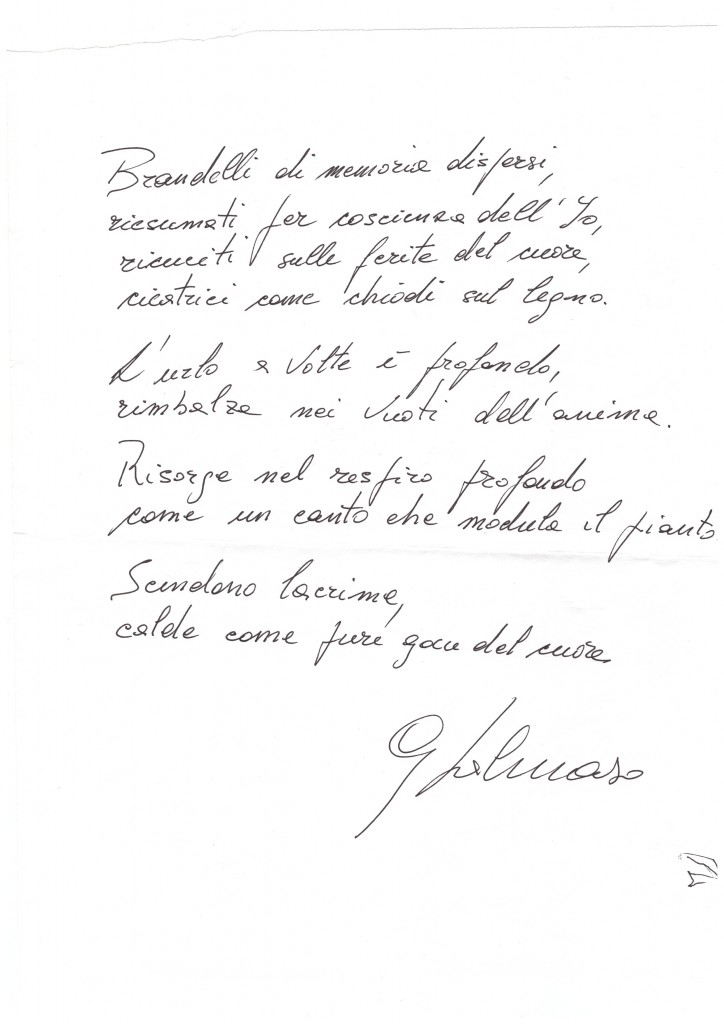 Brandelli di memoria dispersi,
riesumati per coscienza dell'Io,
ricuciti sulle ferite del cuore,
cicatrici come chiodi sul legno.
L'urlo a volte è profondo,
rimbalza nei vuoti dell'anima.
Risorge nel respiro profondo
come un canto che modula il pianto
Scendono lacrime,
calde come pure del cuore